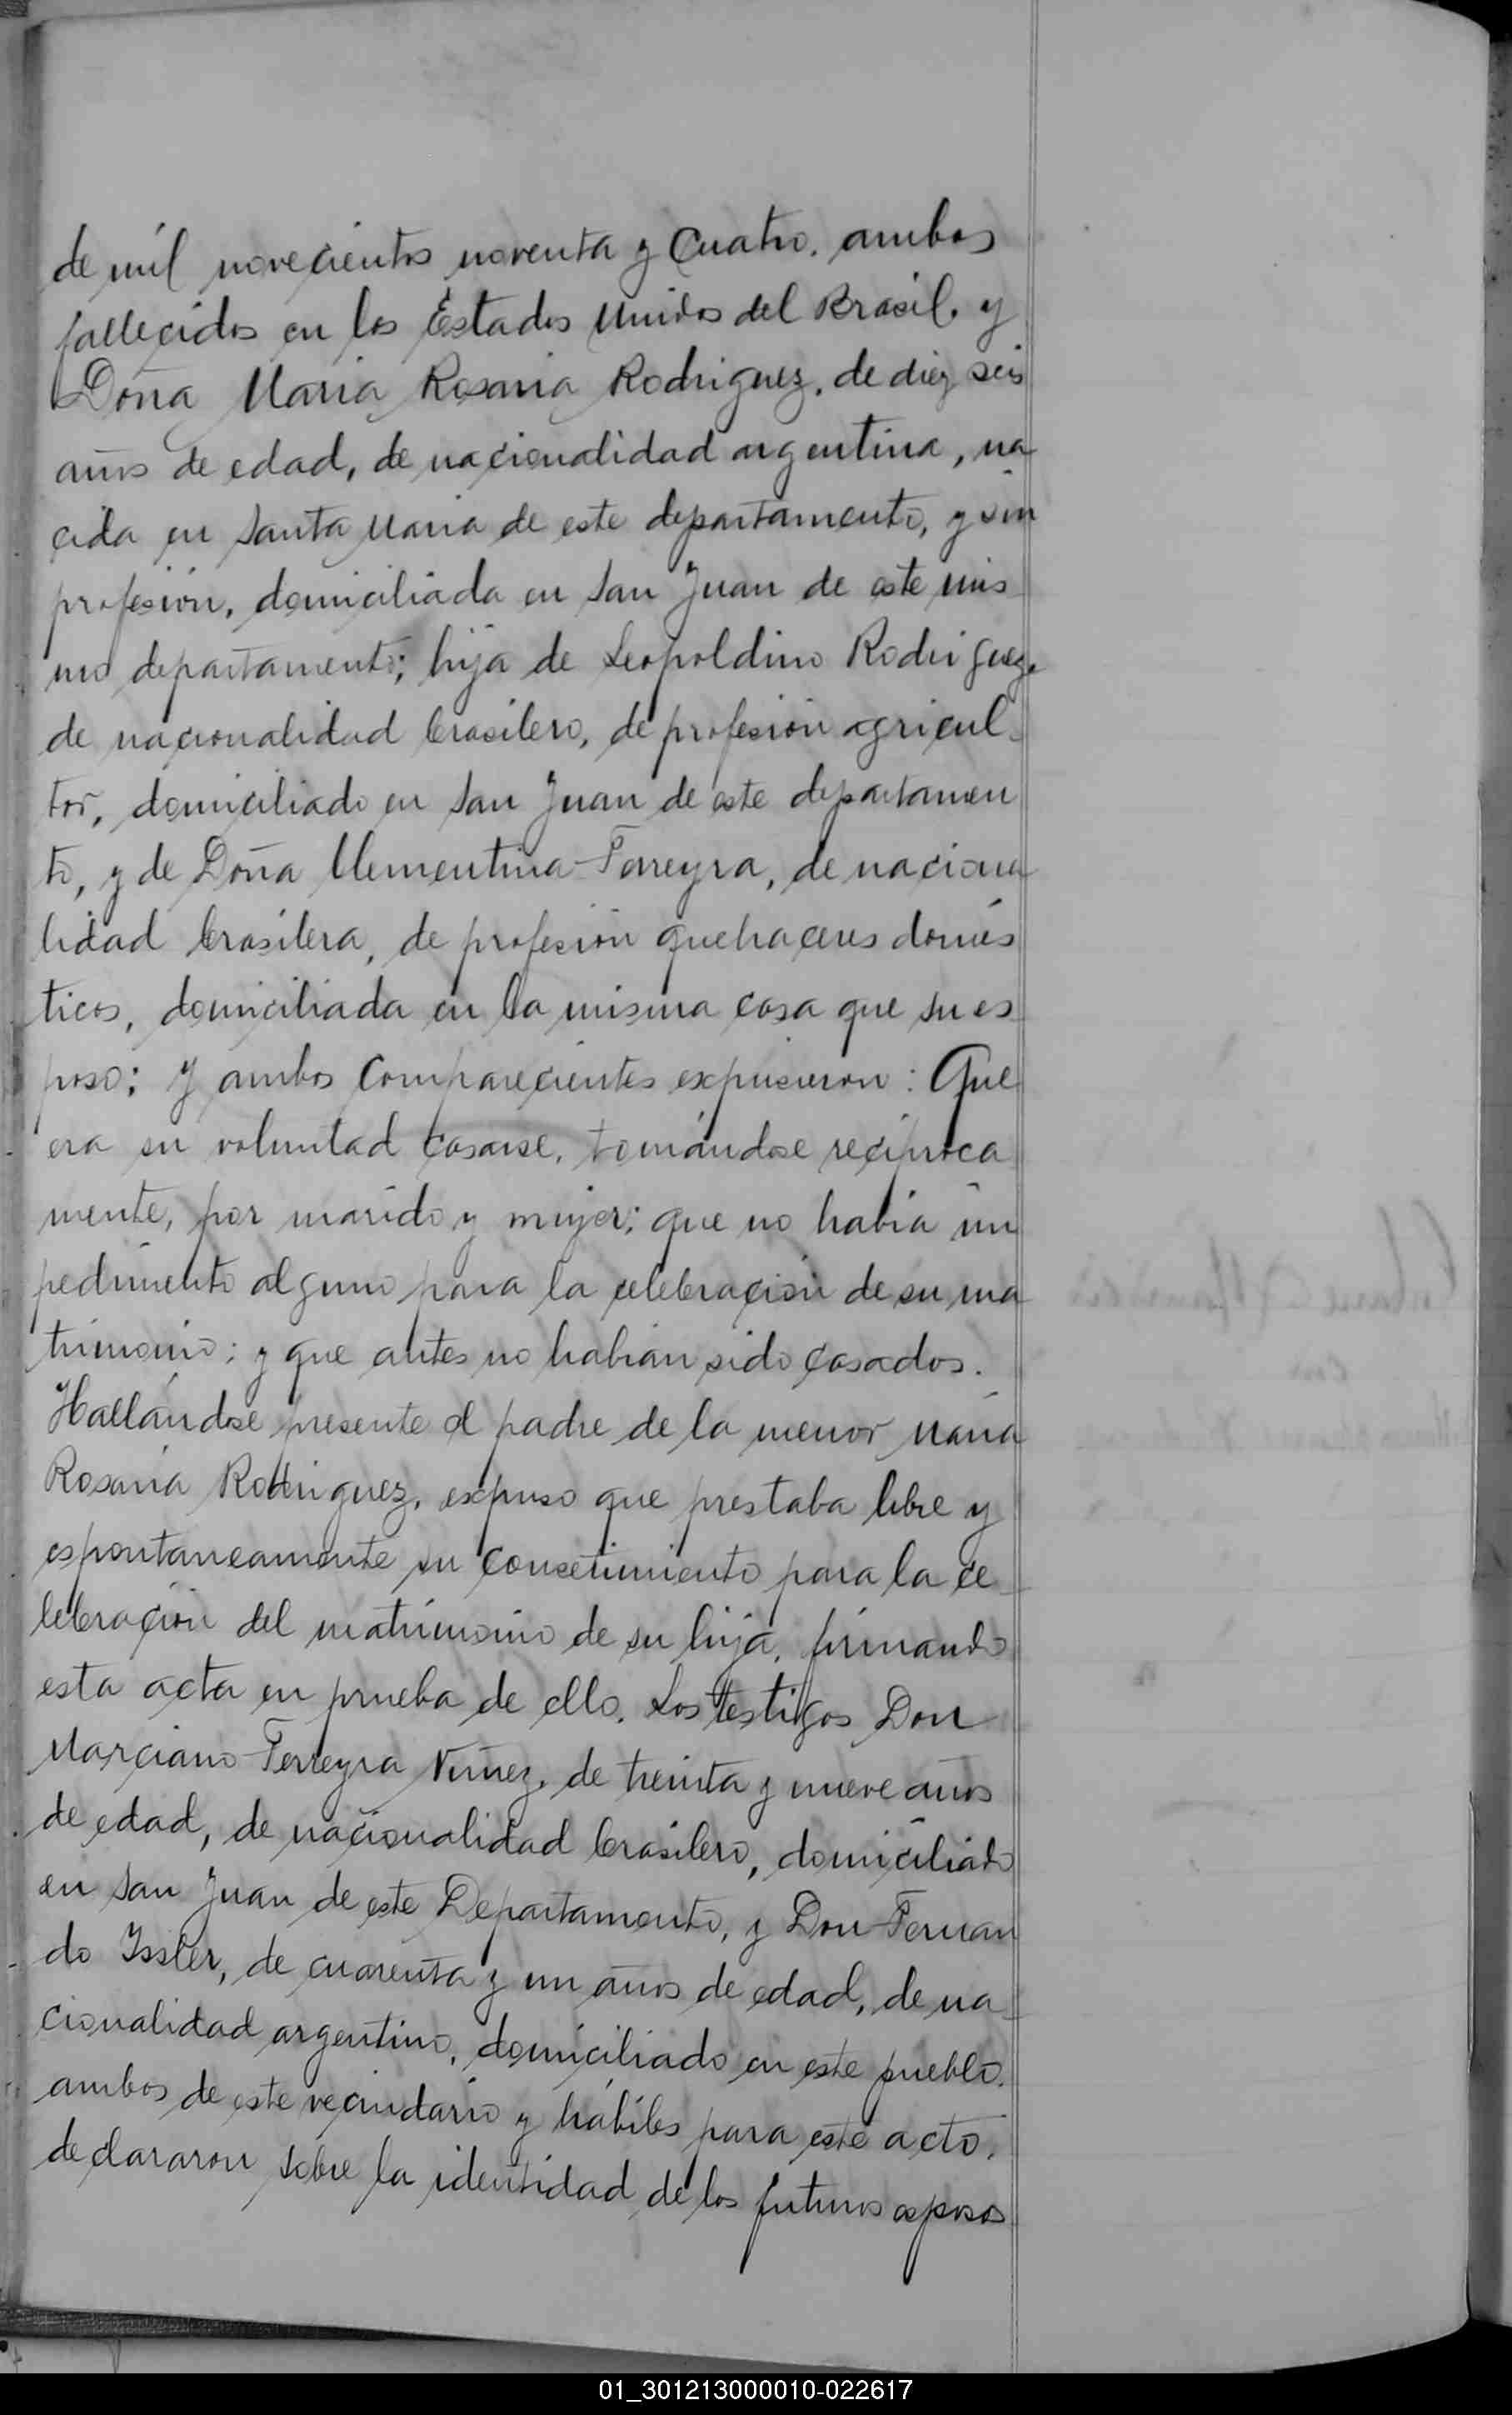 de mil novecientos noventa y Cuatro. ambos
fallecidos en los Estados Unidos del Brasil. y
Doña Maria Rosaria Rodriguez. de diez seis
años de edad, de nacionalidad argentina, na
cida en Santa Maria de este departamento, y sin
profesión, domiciliada en San Juan de este mis
mo departamento; hija de Leopoldino Rodriguez.
de nacionalidad brasilero, de profesión agricul-
tor, domiciliado en San Juan de este departamen
to, y de Doña Clementina Ferreyra, de naciona
lidad brasilera, de profesión quehaceres domés
ticos, domiciliada en la misma casa que su es
poso; y ambos Comparecientes expusieron: Que
era su voluntad casarse, tomándose recíproca
mente, por marido y mujer; que no había im
pedimento alguno para la celebración de su ma
trimonio; y que antes no habían sido casados.
Hallándose presente el padre de la menor Maria
Rosaria Rodriguez, expuso que prestaba libre y
espontaneamente su consetimiento para la ce-
lebración del matrimonio de su hija, firmando
esta acta en prueba de ello. Los testigos Don
Marciano Ferreyra Nuñez. de treinta y nueve años
de edad, de nacionalidad brasilero, domiciliado
en San Juan de este Departamento, y Don Fernan
do Issler, de cuarenta y un años de edad, de na-
cionalidad argentino, domiciliado en este pueblo.
ambos de este vecindario y hábiles para este acto.
declararon sobre la identidad de los futuros esposos
01_301213000010-022617